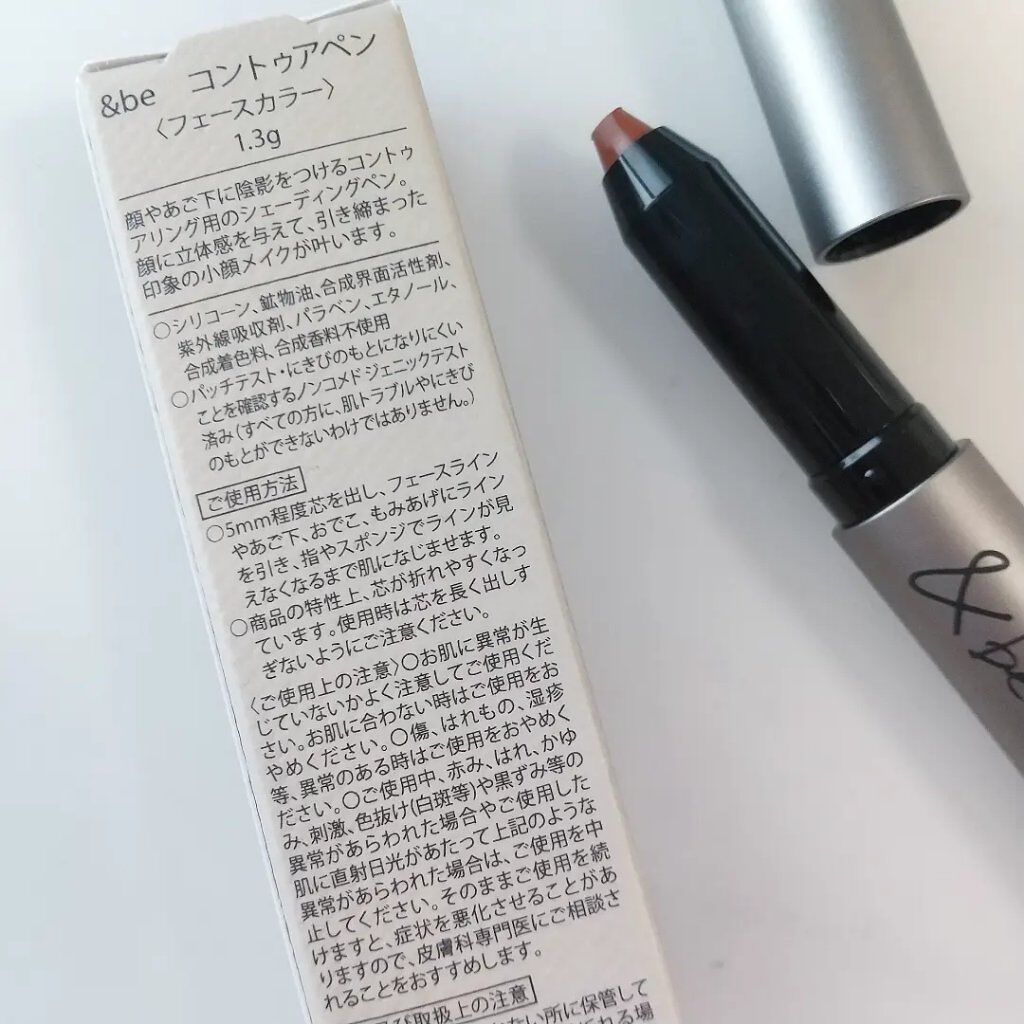 &be コントゥアペン
〈フェースカラー〉
1.3g
顔やあご下に陰影をつけるコントゥ
アリング用のシェーディングペン。
顔に立体感を与えて、引き締まった
印象の小顔メイクが叶います。
○シリコーン、鉱物油、合成界面活性剤、
紫外線吸収剤、パラベン、エタノール、
合成着色料、合成香料不使用
○パッチテスト・にきびのもとになりにくい
ことを確認するノンコメドジェニックテスト
済み(すべての方に、肌トラブルやにきび
のもとができないわけではありません。)
ご使用方法
○5mm程度芯を出し、フェースライン
やあご下、おでこ、もみあげにライン
を引き、指やスポンジでラインが見
えなくなるまで肌になじませます。
○商品の特性上、芯が折れやすくなっ
ています。使用時は芯を長く出しす
ぎないようにご注意ください。
〈ご使用上の注意〉○お肌に異常が生
じていないかよく注意してご使用くだ
さい。お肌に合わない時はご使用をお
やめください。○傷、はれもの、湿疹
等、異常のある時はご使用をおやめく
ださい。○ご使用中、赤み、はれ、かゆ
み、刺激、色抜け(白斑等)や黒ずみ等の
異常があらわれた場合やご使用した
肌に直射日光があたって上記のような
異常があらわれた場合は、ご使用を中
止してください。そのままご使用を続
けますと、症状を悪化させることがあ
りますので、皮膚科専門医にご相談さ
れることをおすすめします。
及び取扱上の注意
ない所に保管して
れる場
& be